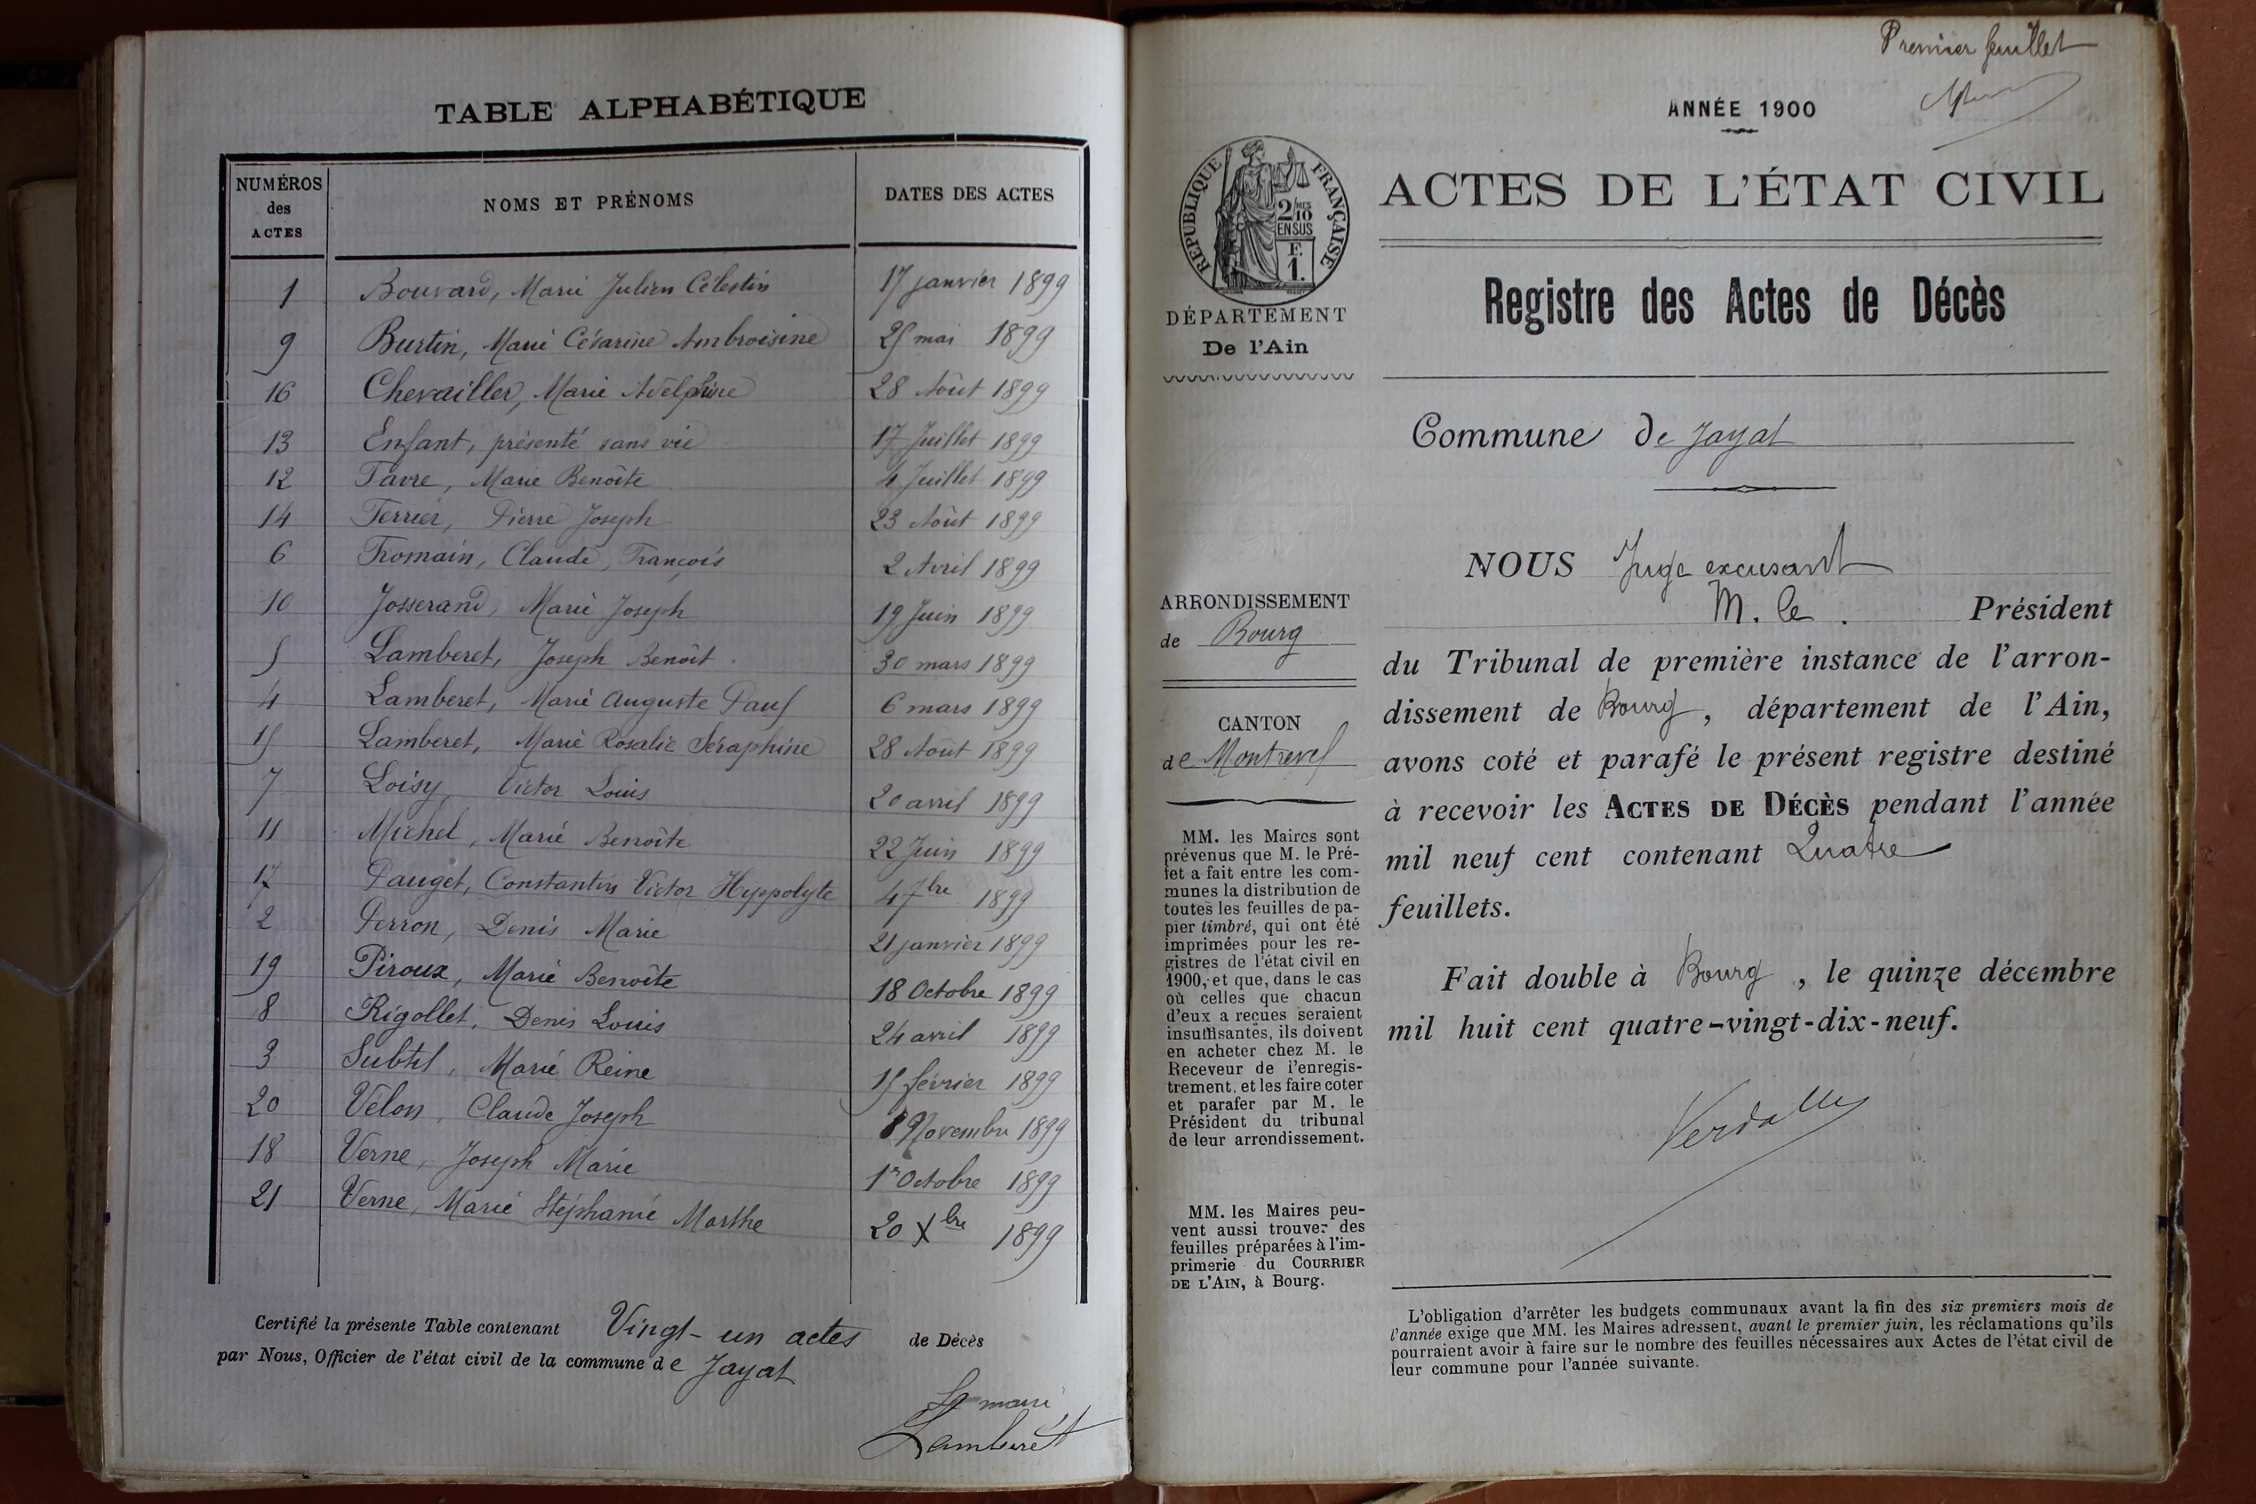 TABLE ALPHABÉTIQUE
NUMÉROS des ACTES
NOMS ET PRÉNOMS
DATES DES ACTES
1 Bouvard, Marie Julien Célestin 17 janvier 1899
9 Burtin, Marie Césarine Ambroisine 25 mai 1899
16 Chevailler, Marie Adelphine 28 Août 1899
13 Enfant, présenté sans vie 17 Juillet 1899
12 Favre, Marie Benoîte 4 Juillet 1899
14 Ferrier, Pierre Joseph 23 Août 1899
6 Fromain, Claude, François 2 Avril 1899
10 Josserand, Marie Joseph 19 Juin 1899
5 Lamberet, Joseph Benoît. 30 mars 1899
4 Lamberet, Marie Auguste Paul 6 mars 1899
15 Lamberet, Marie Rosalie Séraphine 28 Août 1899
7 Loisy, Victor Louis 20 avril 1899
11 Michel, Marie Benoîte 22 Juin 1899
17 Pauget, Constantin Victor Hyppolyte 4 7bre 1899
2 Perron, Denis Marie 21 janvier 1899
19 Piroux, Marie Benoîte 18 Octobre 1899
8 Rigollet, Denis Louis 24 avril 1899
3 Subtil, Marie Reine 15 février 1899
20 Vélon, Claude Joseph 8 Novembre 1899
18 Verne, Joseph Marie 1r Octobre 1899
21 Verne, Marie Stéphanie Marthe 20 Xbre 1899
Certifié la présente Table contenant Vingt-un actes de Décès
par Nous, Officier de l'état civil de la commune de Jayat
Le maire
Lamberet
Premier feuillet
ANNÉE 1900
RÉPUBLIQUE FRANÇAISE
2/10 MES
EN SUS
F.
1.
ACTES DE L'ÉTAT CIVIL
Registre des Actes de Décès
DÉPARTEMENT
De l'Ain
Commune de Jayat
ARRONDISSEMENT
de Bourg
CANTON
de Montrevel
MM. les Maires sont
prévenus que M. le Pré-
fet a fait entre les com-
munes la distribution de
toutes les feuilles de pa-
pier timbré, qui ont été
imprimées pour les re-
gistres de l'état civil en
1900, et que, dans le cas
où celles que chacun
d'eux a reçues seraient
insuffisantes, ils doivent
en acheter chez M. le
Receveur de l'enregis-
trement, et les faire coter
et parafer par M. le
Président du tribunal
de leur arrondissement.
MM. les Maires peu-
vent aussi trouver des
feuilles préparées à l'im-
primerie du COURRIER
DE L'AIN, à Bourg.
NOUS Juge excusant
M. le. Président
du Tribunal de première instance de l'arron-
dissement de Bourg, département de l'Ain,
avons coté et parafé le présent registre destiné
à recevoir les ACTES DE DÉCÈS pendant l'année
mil neuf cent contenant Quatre
feuillets.
Fait double à Bourg, le quinze décembre
mil huit cent quatre-vingt-dix-neuf.
L'obligation d'arrêter les budgets communaux avant la fin des six premiers mois de
l'année exige que MM. les Maires adressent, avant le premier juin, les réclamations qu'ils
pourraient avoir à faire sur le nombre des feuilles nécessaires aux Actes de l'état civil de
leur commune pour l'année suivante.